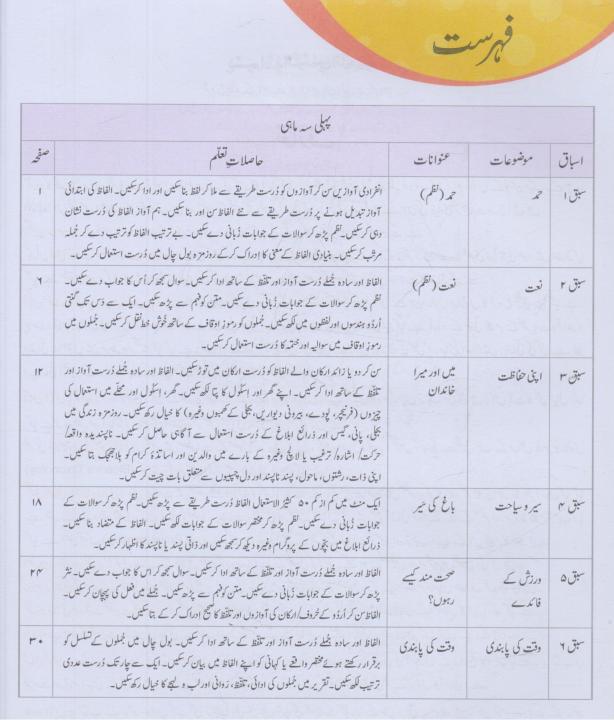 فہرست
پہلی سہ ماہی
اسباق موضوعات عنوانات حاصلاتِ تعلّم صفحہ
سبق ۱ حمد حمد (نظم) انفرادی آوازیں سن کر آوازوں کو دُرست طریقے سے ملا کر لفظ بنا سکیں اور ادا کر سکیں۔ الفاظ کی ابتدائی ۱
آواز تبدیل ہونے پر دُرست طریقے سے نئے الفاظ سن اور بنا سکیں۔ ہم آواز الفاظ کی دُرست نشان
دہی کر سکیں۔ نظم پڑھ کر سوالات کے جوابات زُبانی دے سکیں۔ بے ترتیب الفاظ کو ترتیب دے کر جُملہ
مرتب کر سکیں۔ بنیادی الفاظ کے معنی کا ادراک کر کے روزمرہ بول چال میں دُرست استعمال کر سکیں۔
سبق ۲ نعت نعت (نظم) الفاظ اور سادہ جُملے دُرست آواز اور تلفّظ کے ساتھ ادا کر سکیں۔ سوال سمجھ کر اُس کا جواب دے سکیں۔ ۶
نظم پڑھ کر سوالات کے جوابات زُبانی دے سکیں۔ متن کو فہم سے پڑھ سکیں۔ ایک سے دَس تک گنتی
اُردو ہندسوں اور لفظوں میں لکھ سکیں۔ جُملوں کو رموزِ اوقاف کے ساتھ خُوش خط نقل کر سکیں۔ جُملوں میں
رموزِ اوقاف میں سوالیہ اور ختمہ کا دُرست استعمال کر سکیں۔
سبق ۳ اپنی حفاظت میں اور میرا خاندان سن کر دو یا زائد ارکان والے الفاظ کو دُرست ارکان میں توڑ سکیں۔ الفاظ اور سادہ جُملے دُرست آواز اور ۱۲
تلفّظ کے ساتھ ادا کر سکیں۔ اپنے گھر اور اسکول کا پتا لکھ سکیں۔ گھر، اسکول اور محلّے میں استعمال کی
چیزوں (فرنیچر، پودے، بیرونی دیواریں، بجلی کے کھمبوں وغیرہ) کا خیال رکھ سکیں۔ روزمرہ زندگی میں
بجلی، پانی، گیس اور ذرائع ابلاغ کے دُرست استعمال سے آگاہی حاصل کر سکیں۔ ناپسندیدہ واقعہ/
حرکت/ اشارہ/ ترغیب یا لالچ وغیرہ کے بارے میں والدین اور اساتذۂ کرام کو بلاجھجک بتا سکیں۔
اپنی ذات، رشتوں، ماحول، پسند ناپسند اور دل چسپیوں سے متعلق بات چیت کر سکیں۔
سبق ۴ سیر و سیاحت باغ کی سَیر ایک منٹ میں کم از کم ۵۰ کثیر الاستعمال الفاظ دُرست طریقے سے پڑھ سکیں۔ نظم پڑھ کر سوالات کے ۱۸
جوابات زُبانی دے سکیں۔ نظم پڑھ کر مختصر سوالات کے جوابات لکھ سکیں۔ الفاظ کے متضاد بنا سکیں۔
ذرائع ابلاغ میں بچّوں کے پروگرام وغیرہ دیکھ کر سمجھ سکیں اور ذاتی پسند یا ناپسند کا اظہار کر سکیں۔
سبق ۵ ورزش کے فائدے صحت مند کیسے رہوں؟ الفاظ اور سادہ جُملے دُرست آواز اور تلفّظ کے ساتھ ادا کر سکیں۔ سوال سمجھ کر اس کا جواب دے سکیں۔ نثر ۲۴
پڑھ کر سوالات کے جوابات زُبانی دے سکیں۔ متن کو فہم سے پڑھ سکیں۔ جُملے میں فعل کی پہچان کر سکیں۔
الفاظ سن کر اُردو کے حُروف/ ارکان کی آوازوں اور تلفّظ کا صحیح ادراک کر کے بتا سکیں۔
سبق ۶ وقت کی پابندی وقت کی پابندی الفاظ اور سادہ جُملے دُرست آواز اور تلفّظ کے ساتھ ادا کر سکیں۔ بول چال میں جُملوں کے تسلسل کو ۳۰
برقرار رکھتے ہوئے مختصر واقعے یا کہانی کو اپنے الفاظ میں بیان کر سکیں۔ ایک سے چار تک دُرست عددی
ترتیب لکھ سکیں۔ تقریر میں جُملوں کی ادائی، تلفّظ، رَوانی اور لب و لہجے کا خیال رکھ سکیں۔